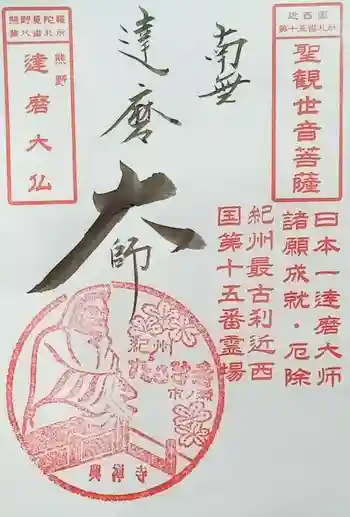 近西国
第十五番札所
聖観世音菩薩
日本一達磨大师
諸願成就・厄除
紀州最古刹近西
国第十五番霊場
南無
達磨
大師
熊野曼陀羅
第八番札所
熊野
達磨大仏
紀州
市ノ瀬